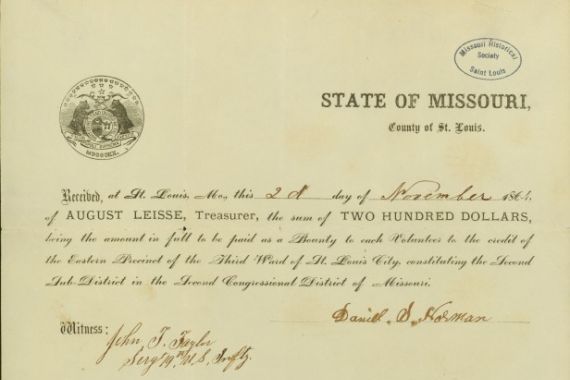 Missouri Historical
Society
Saint Louis
STATE OF MISSOURI,
County of St. Louis.
MISSOURI.
Received, at St. Louis, Mo., this 2d day of November 1864,
of AUGUST LEISSE, Treasurer, the sum of TWO HUNDRED DOLLARS,
being the amount in full to be paid as a Bounty to each Volunteer to the credit of
the Eastern Precinct of the Third Ward of St. Louis City, constituting the Second
Sub-District in the Second Congressional District of Missouri.
Daniel S. Norman
Witness:
John T. Taylor
Serg't 19th U.S. Infty.